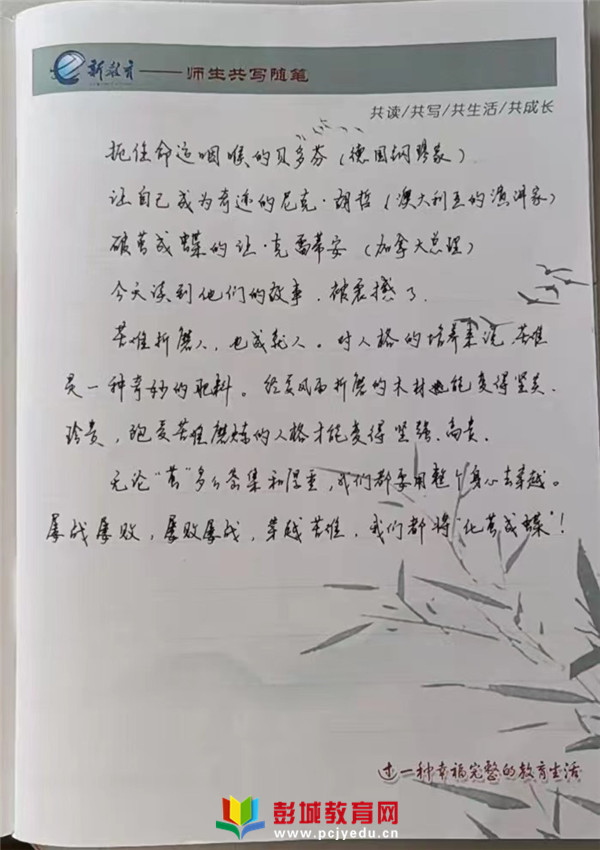 新教育——师生共写随笔
共读/共写/共生活/共成长
扼住命运咽喉的贝多芬（德国钢琴家）
让自己成为奇迹的尼克·胡哲（澳大利亚的演讲家）
破茧成蝶的让·克雷蒂安（加拿大总理）
今天读到他们的故事，被震撼了.
苦难折磨人，也成就人。对人格的培养来说，苦难
是一种奇妙的肥料。经受风雨折磨的木材能变得坚美、
珍贵，饱受苦难磨炼的人格才能变得坚强、高贵.
无论“茧”多么密集和厚重，我们都要用整个身心去穿越。
屡战屡败，屡败屡战，穿越苦难，我们都将“化茧成蝶”！
过一种幸福完整的教育生活
彭城教育网
www.pcjyedu.cn